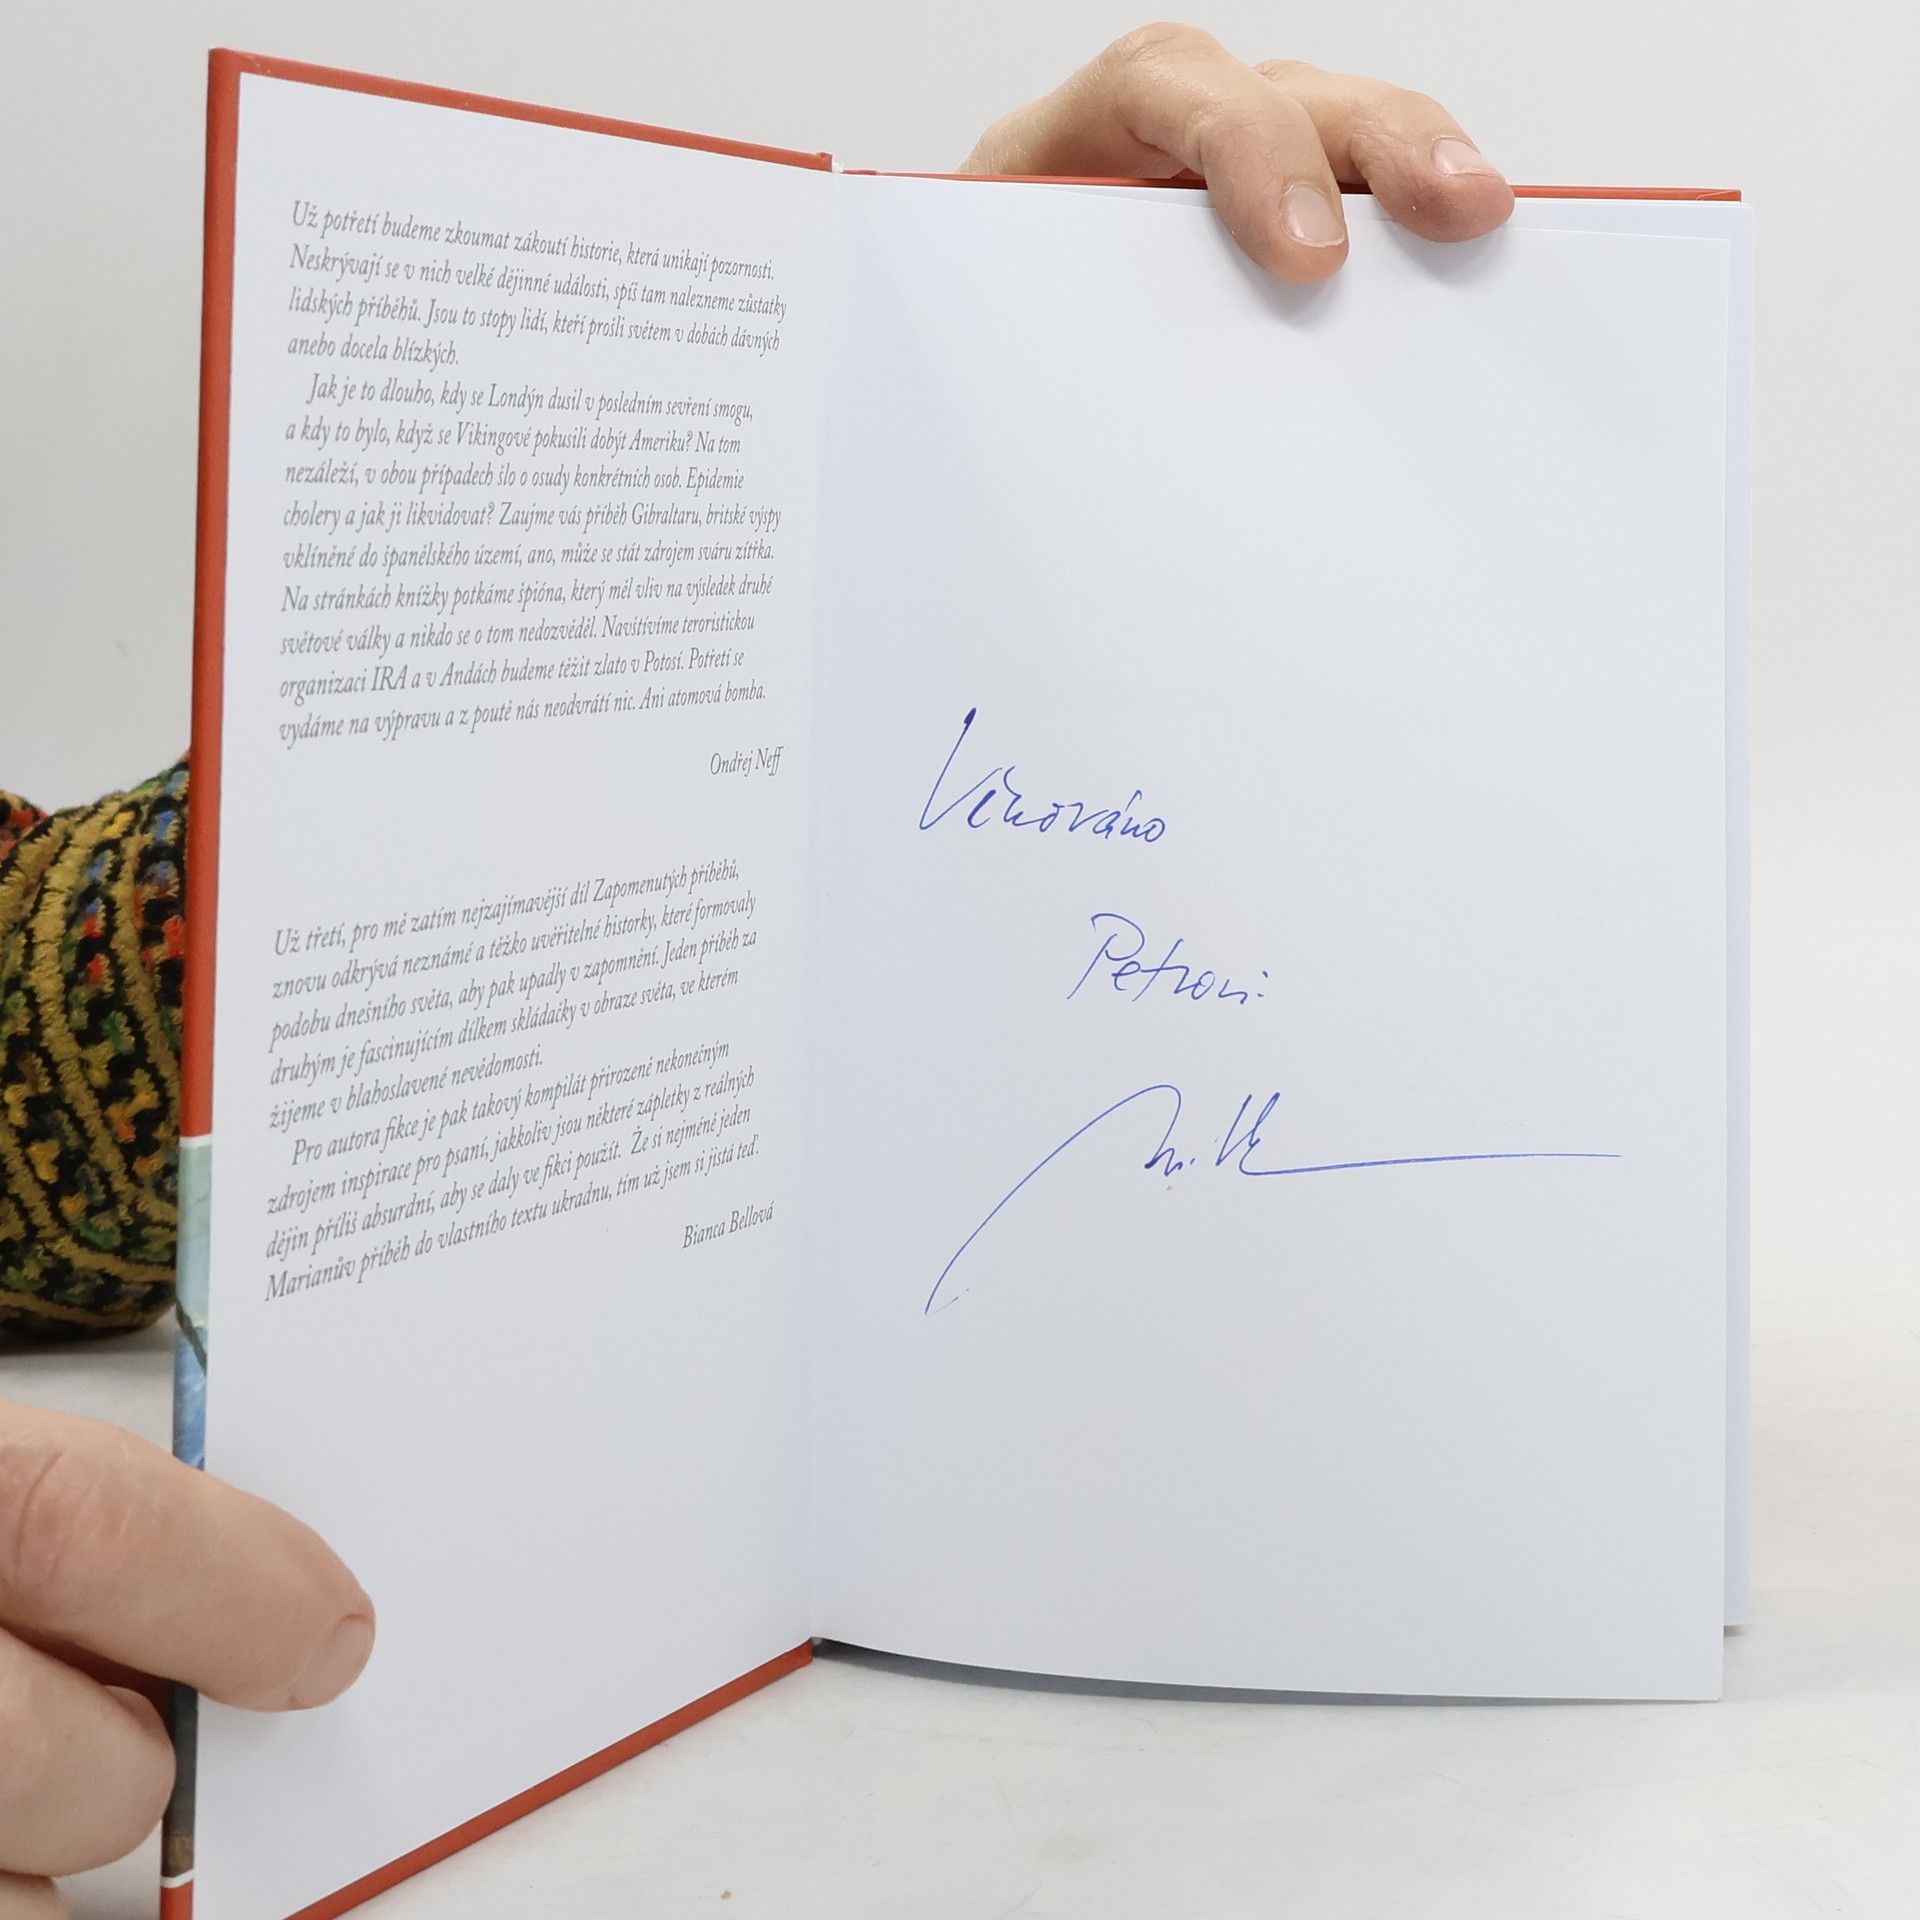 Už potřetí budeme zkoumat zákoutí historie, která unikají pozornosti.
Neskrývají se v nich velké dějinné události, spíš tam nalezneme zůstatky
lidských příběhů. Jsou to stopy lidí, kteří prošli světem v dobách dávných
anebo docela blízkých.
Jak je to dlouho, kdy se Londýn dusil v posledním sevření smogu,
a kdy to bylo, když se Vikingové pokusili dobýt Ameriku? Na tom
nezáleží, v obou případech šlo o osudy konkrétních osob. Epidemie
cholery a jak ji likvidovat? Zaujme vás příběh Gibraltaru, britské výspy
vklíněné do španělského území, ano, může se stát zdrojem sváru zítřka.
Na stránkách knížky potkáme špióna, který měl vliv na výsledek druhé
světové války a nikdo se o tom nedozvěděl. Navštívíme teroristickou
organizaci IRA a v Andách budeme těžit zlato v Potosí. Potřetí se
vydáme na výpravu a z poutě nás neodvrátí nic. Ani atomová bomba.
Ondřej Neff
Už třetí, pro mě zatím nejzajímavější díl Zapomenutých příběhů,
znovu odkrývá neznámé a těžko uvěřitelné historky, které formovaly
podobu dnešního světa, aby pak upadly v zapomnění. Jeden příběh za
druhým je fascinujícím dílkem skládačky v obraze světa, ve kterém
žijeme v blahoslavené nevědomosti.
Pro autora fikce je pak takový kompilát přirozeně nekonečným
zdrojem inspirace pro psaní, jakkoliv jsou některé zápletky z reálných
dějin příliš absurdní, aby se daly ve fikci použít. Že si nejméně jeden
Marianův příběh do vlastního textu ukradnu, tím už jsem si jistá teď.
Bianca Bellová
Věnováno
Petrovi